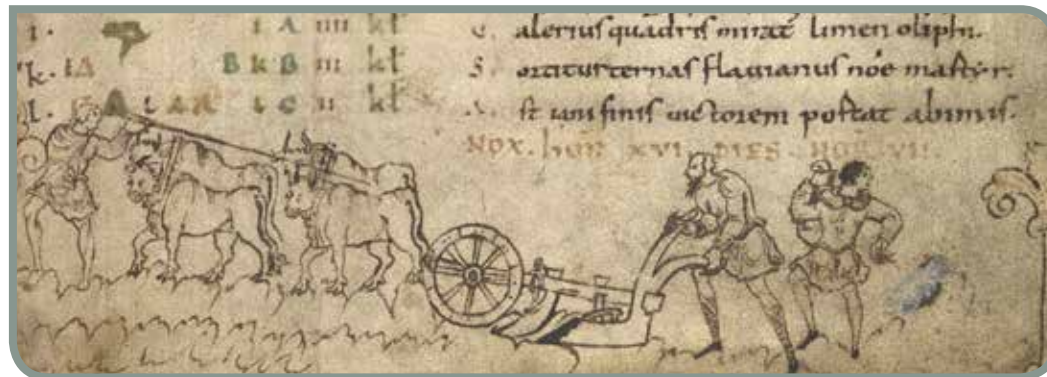 i. I A IIII kł C. alerius quadris mirat limen oliphi.
k. IA B k B III kł S. ortitus ternas flauianus nóe martyr.
l. I C II kł st uni finis uectorem postat abimis.
NOX. hOR XVI. DIES. HOR VII.